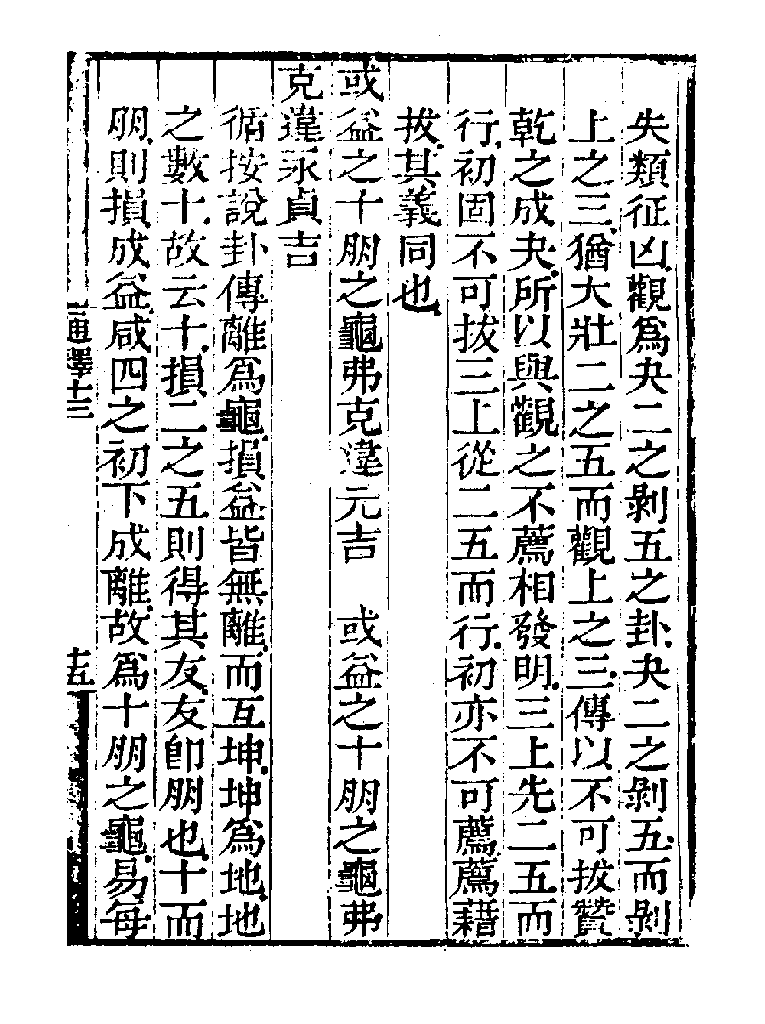 失類征凶觀爲夬二之剥五之卦夬二之剥五而剥
上之三猶大壯二之五而觀上之三傳以不可拔贊
乾之成夬所以與觀之不薦相發明三上先二五而
行初固不可拔三上從二五而行初亦不可薦薦藉
拔其義同也
或益之十朋之龜弗克違元吉　或益之十朋之龜弗
克違永貞吉
循按說卦傳離爲龜損益皆無離而互坤坤爲地地
之數十故云十損二之五則得其友友卽朋也十而
朋則損成益咸四之初下成離故爲十朋之龜易每
通釋十三
十五